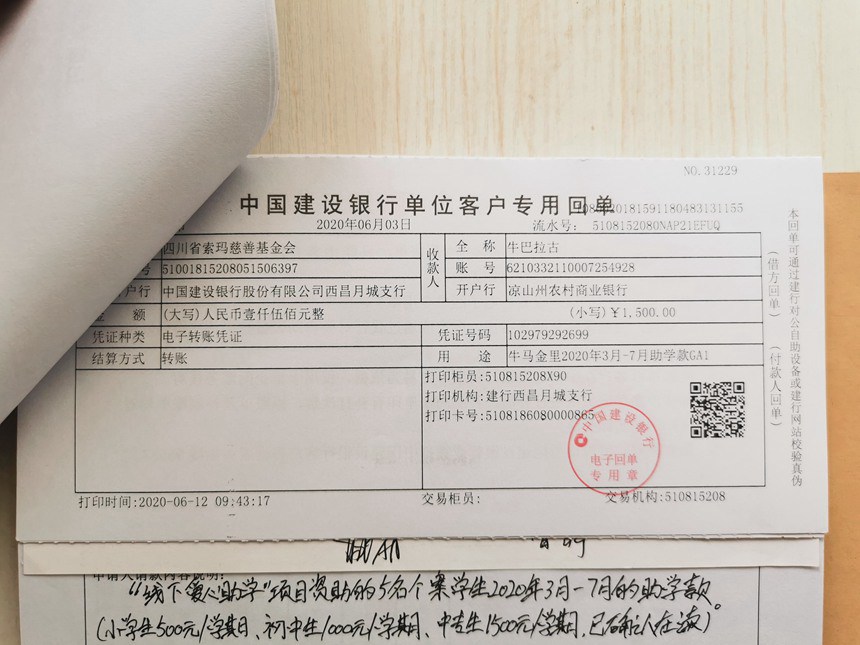 NO.31229
中国建设银行单位客户专用回单
2020年06月03日 流水号: 5108152080NAP21EFUQ
四川省索玛慈善基金会 收款人 全 称 牛巴拉古
号 51001815208051506397 账 号 6210332110007254928
户行 中国建设银行股份有限公司西昌月城支行 开户行 凉山州农村商业银行
金 额 (大写)人民币壹仟伍佰元整 (小写)¥1,500.00
凭证种类 电子转账凭证 凭证号码 102979292699
结算方式 转账 用 途 牛马金里2020年3月-7月助学款GA1
打印柜员:510815208X90
打印机构:建行西昌月城支行
打印卡号:5108186080000865
中国建设银行
电子回单
专用章
打印时间:2020-06-12 09:43:17 交易柜员: 交易机构:510815208
本回单可通过建行对公自助设备或建行网站校验真伪
(借方回单)
(付款人回单)
申请人请款内容说明:
“线下爱心助学”项目资助的5名个案学生2020年3月-7月的助学款
(小学生500元/学期、初中生1000元/学期、中专生1500元/学期,已确认在读)。